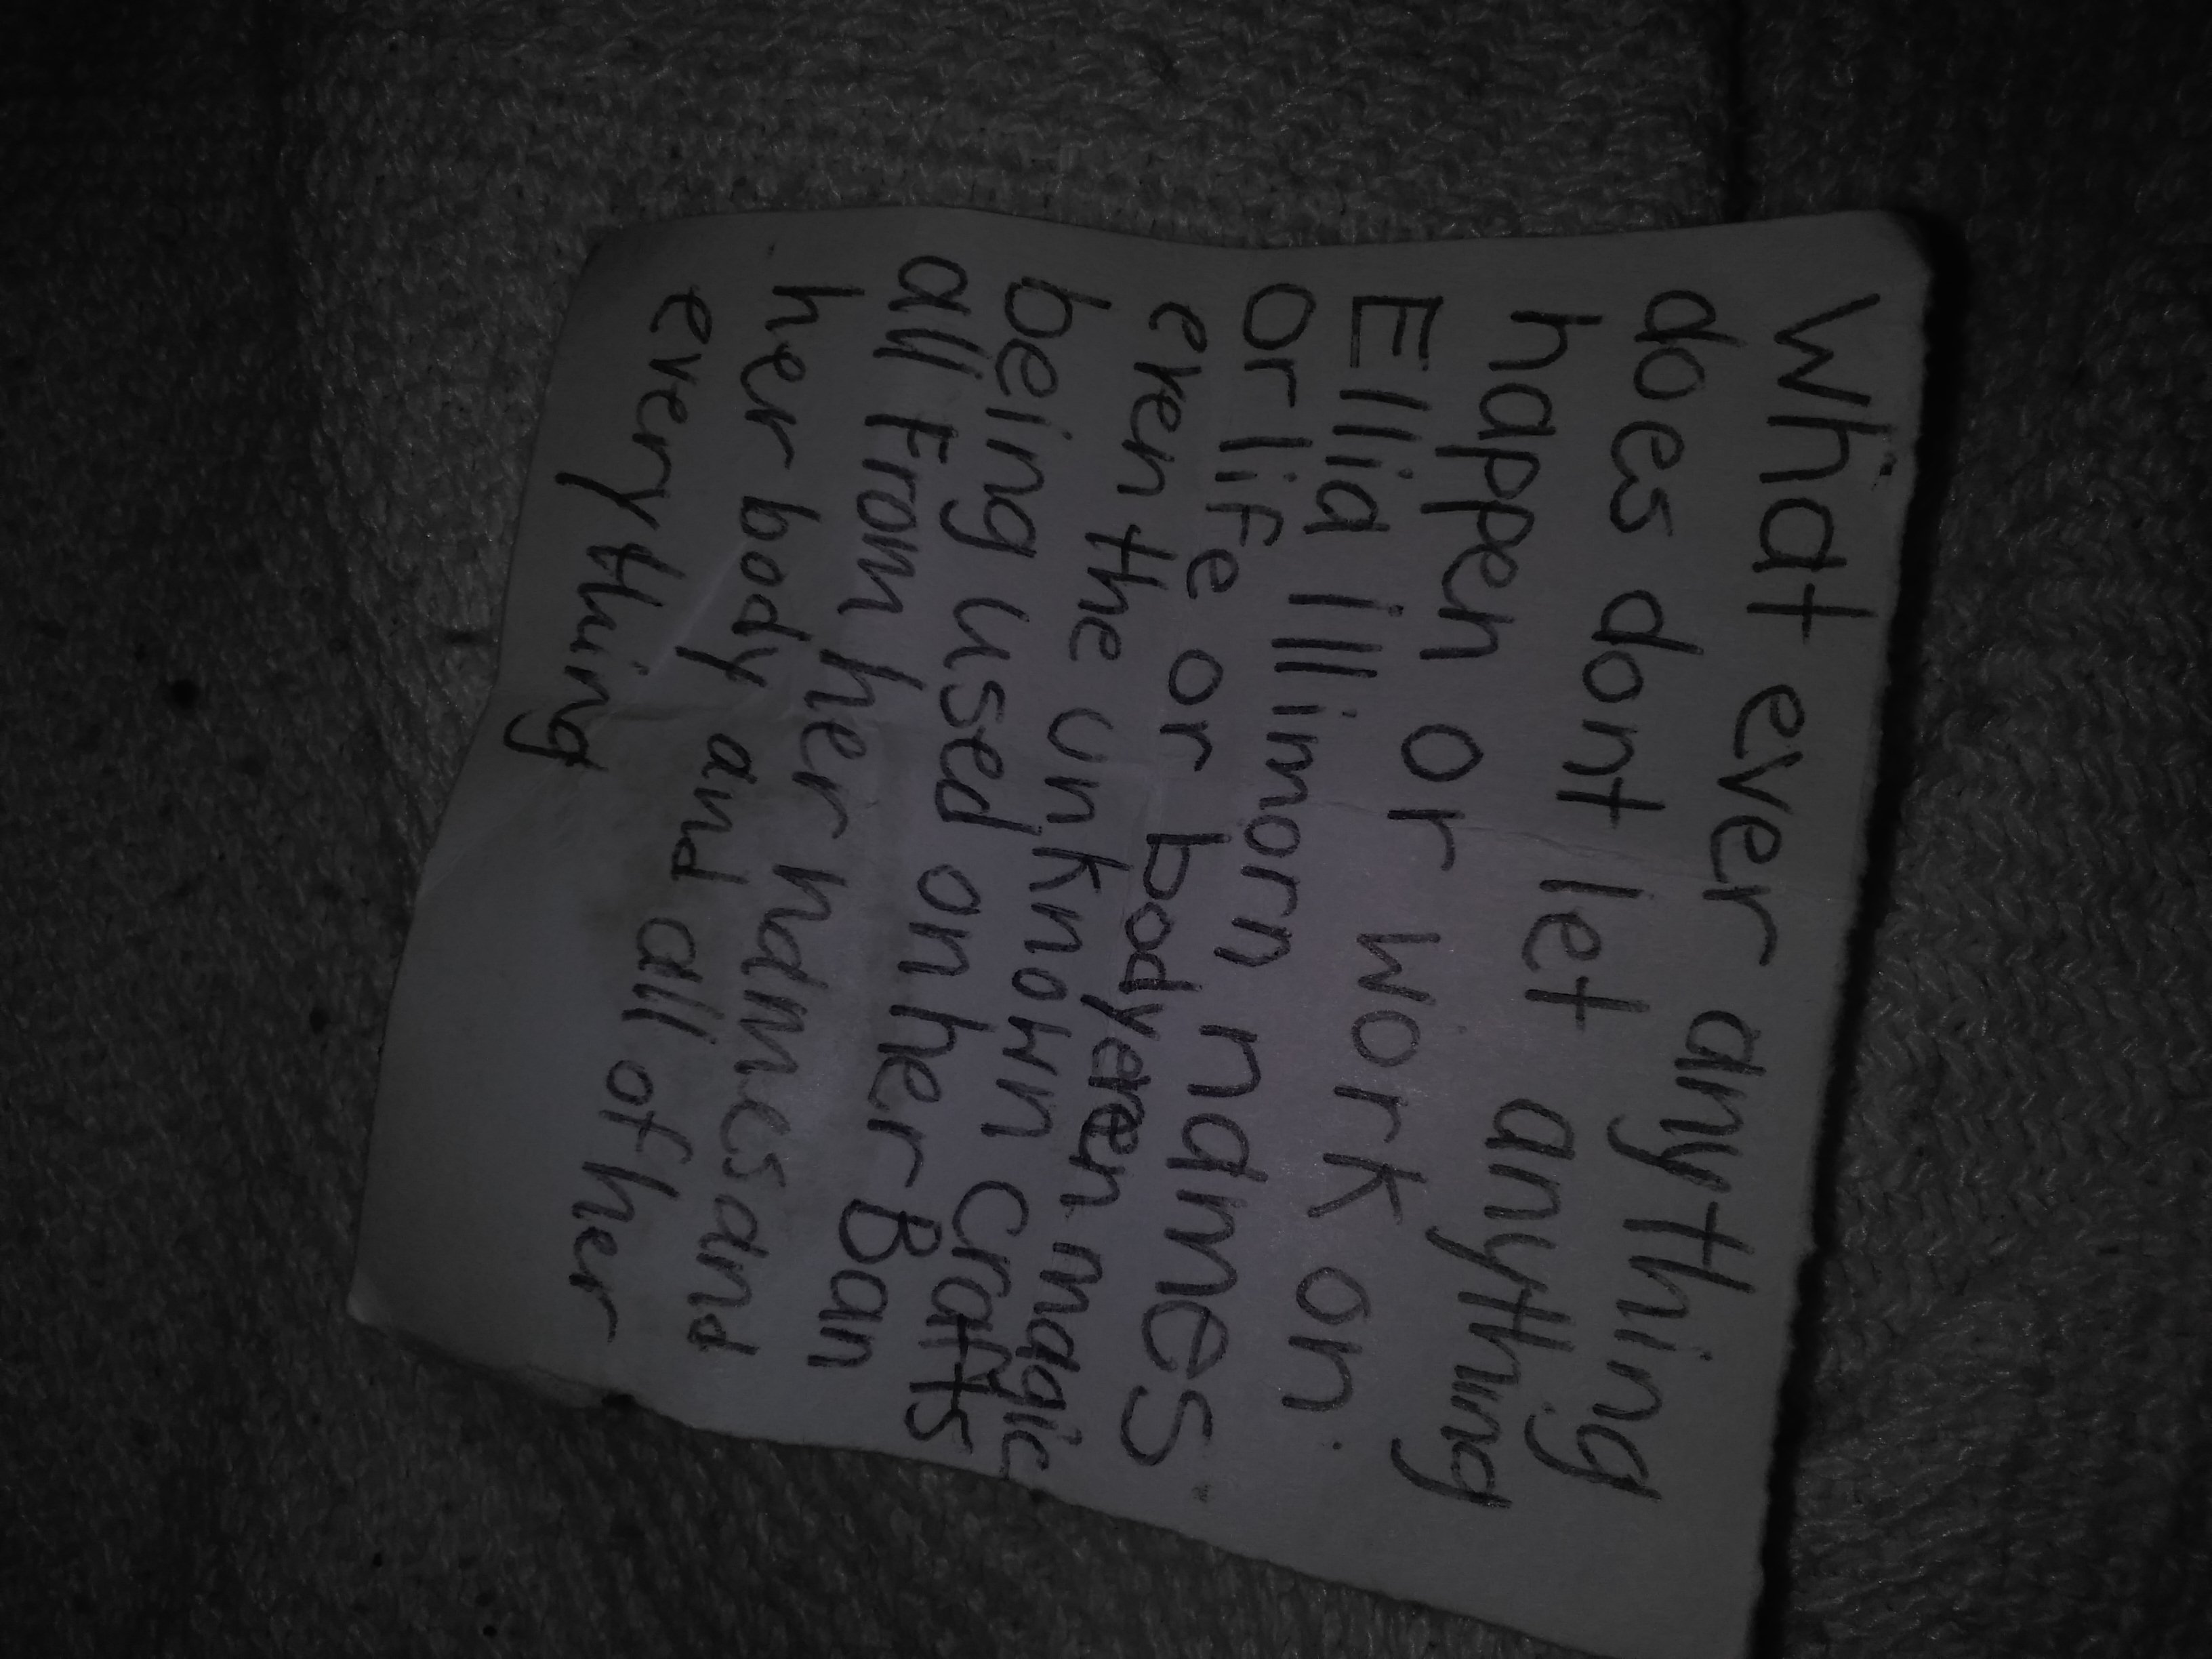 What ever anything
does dont let anything
happen or work on
Ellia illimorn names
or life or body even magic
even the unknown crafts
being used on her Ban
all From her names and
her body and all of her
every thing